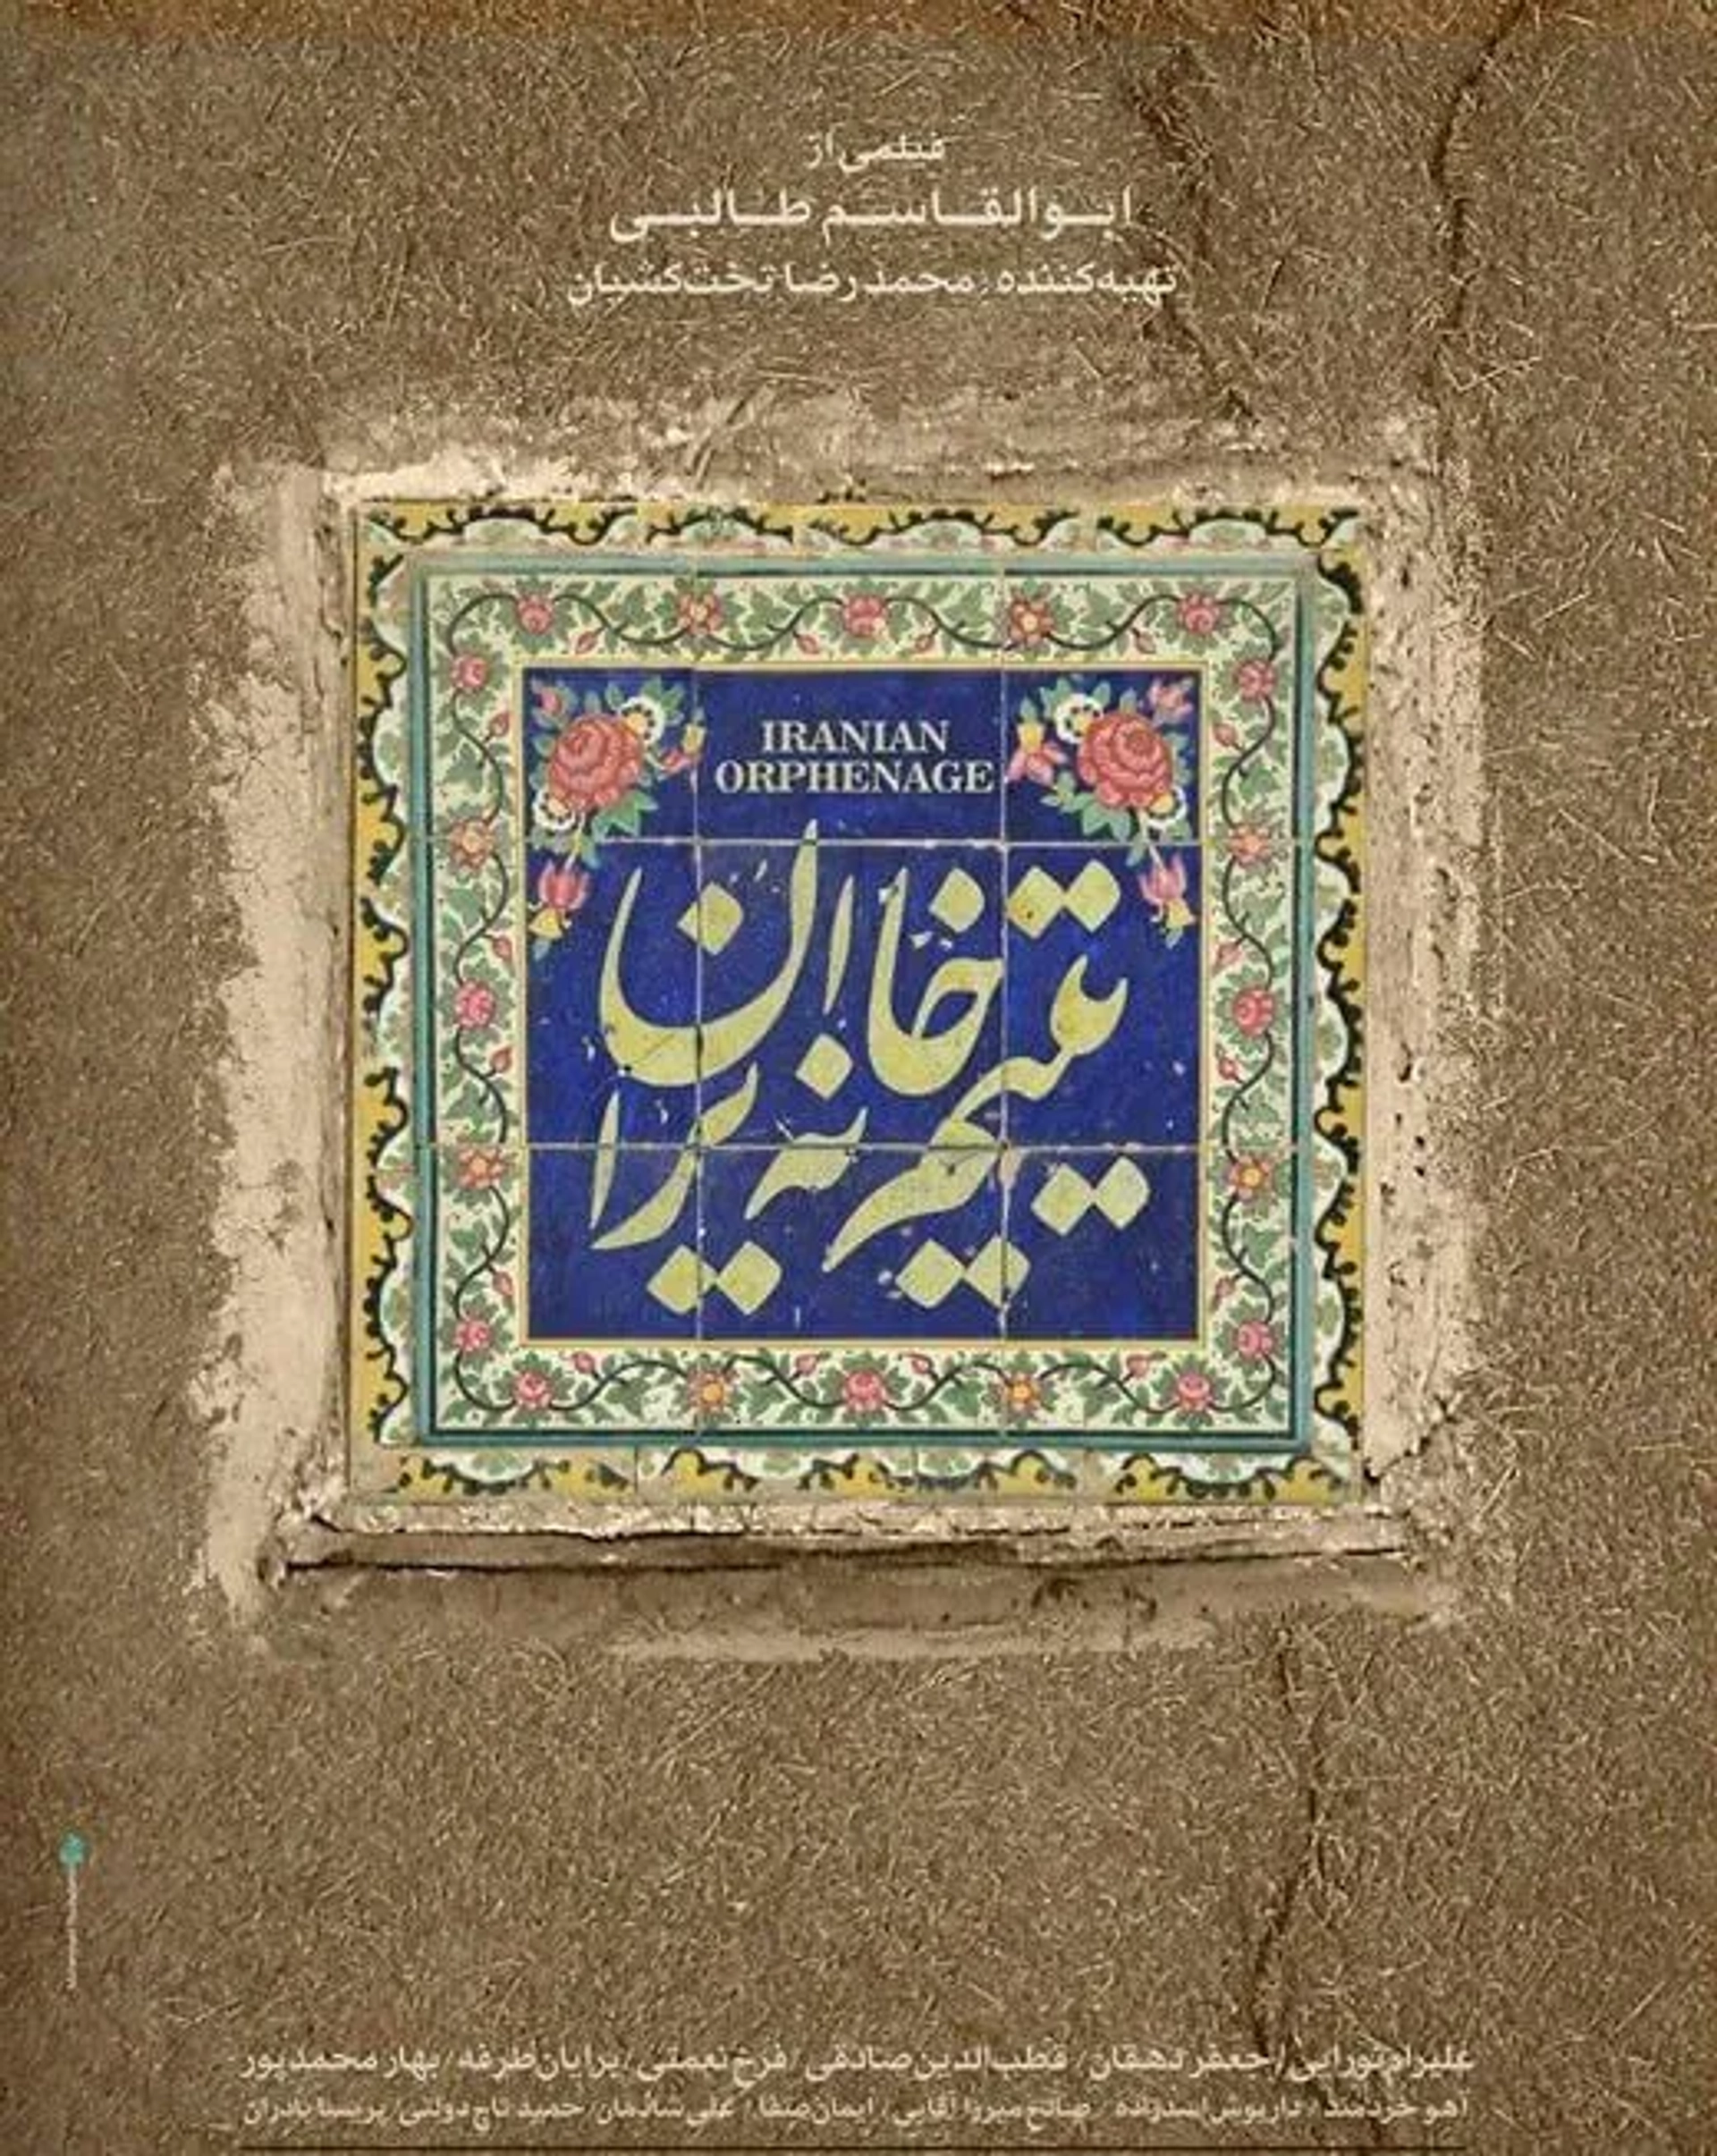 فیلمی از
ابوالقاسم طالبی
تهیه‌کننده: محمدرضا تخت‌کشیان
IRANIAN
ORPHENAGE
یتیم خانه ایران
علیرام نورایی / جعفر دهقان / قطب‌الدین صادقی / فرخ نعمتی / برایان طرفه / بهار محمدپور
آهو خردمند / داریوش اسدزاده / صالح میرزا آقایی / ایمان صفا / علی شادمان / حمید تاج‌دولتی / پریسا بادران